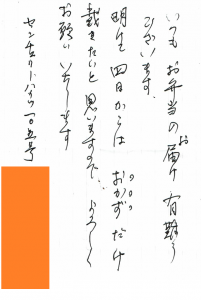 いつもお弁当のお届け有難う
ございます。
明生 四日からは おかずだけ
戴きたいと思いますので よろしく
お願いいたします
センチュリーハイツ一〇五号